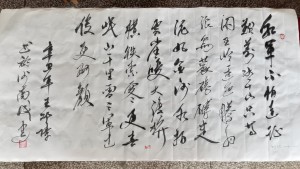 红军不怕远征
难万水千山只等
闲五岭逶迤腾细
浪乌蒙磅礴走
泥丸金沙水拍
云崖暖大渡桥
横铁索寒更喜
岷山千里雪三军过
后尽开颜